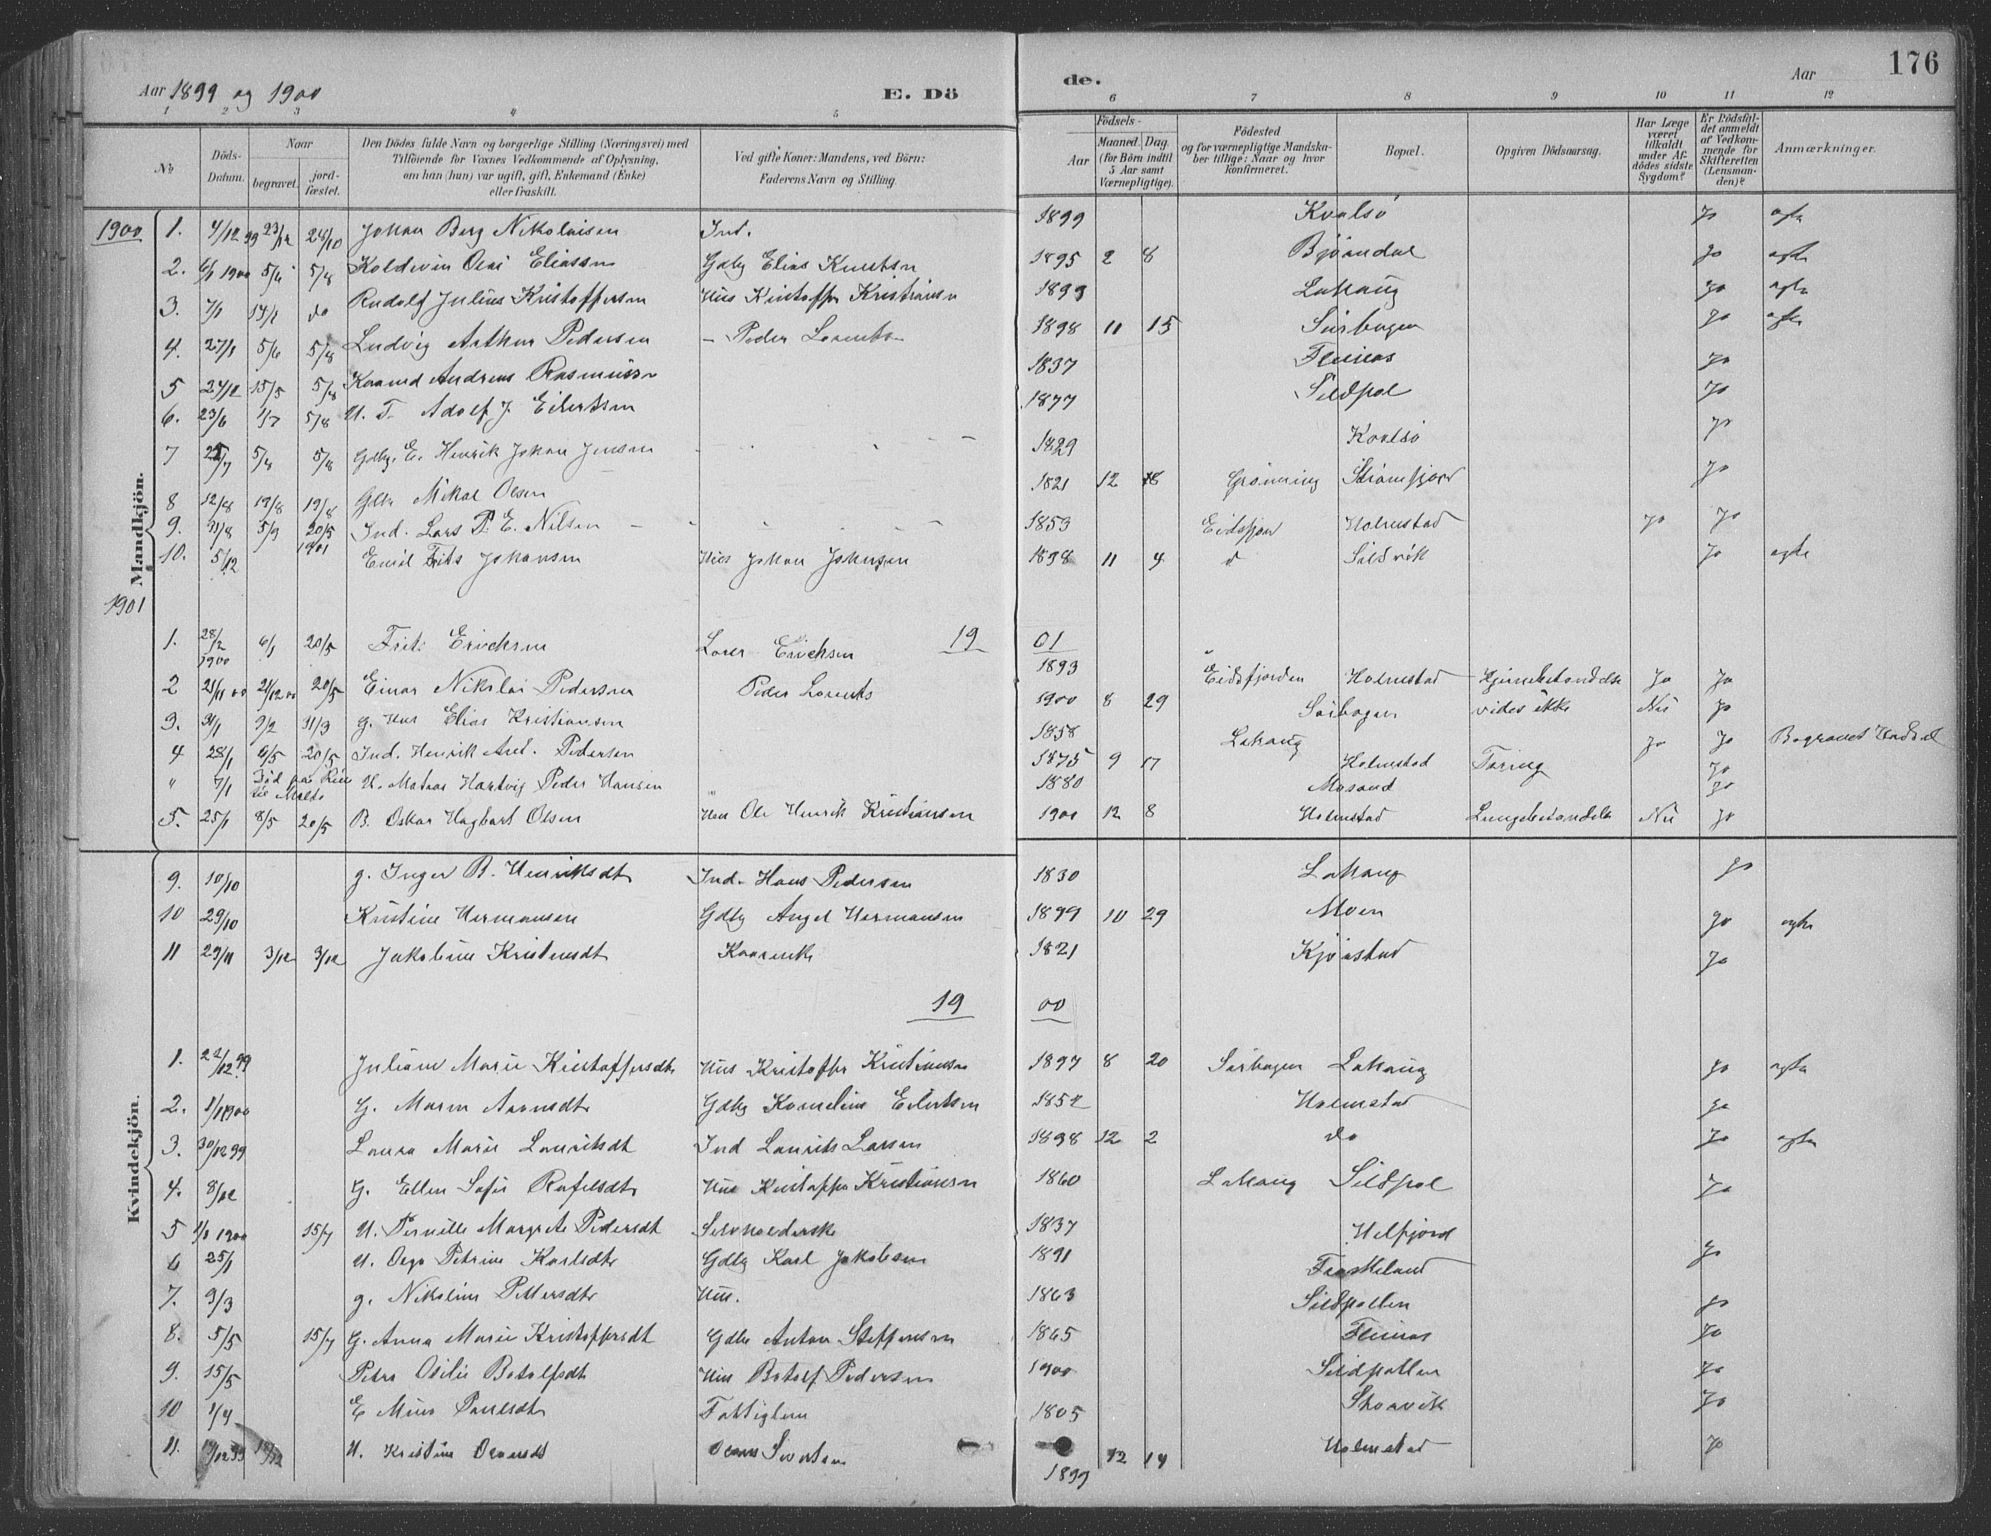 176
Aar 1899 og 1900 E. Dö de. Aar
1 2 3 4 5 6 7 8 9 10 11 12
No
Döds-Datum.
Naar begravet. jordfæstet.
Den Dödes fulde Navn og borgerlige Stilling (Næringsvei) med Tilföiende for Voxnes Vedkommende af Oplysning, om han (hun) var ugift, gift, Enkemand (Enke) eller fraskilt.
Ved gifte Koner: Mandens, ved Börn: Faderens Navn og Stilling.
Födsels-
Aar Maaned. Dag. (for Börn indtil 5 Aar samt Værnepligtige).
Födested og for værnepligtige Mandskaber tillige: Naar og hvor konfirmeret.
Bopæl.
Opgiven Dödsaarsag.
Har Læge været tilkaldt under Afdödes sidste Sygdom?
Er Dödsfaldet anmeldt af Vedkommende for Skifteretten (Lensmanden)?
Anmærkninger.
Mandkjön.
1900 1. 4/12 99 23/12 28/10 Johan Berg Nikolaisen Ind. 1899 Kvalsö Jo ægte
2. 6/1 1900 5/6 5/8 Koldevin Olai Eliassen Gdbg Elias Knutsen 1895 2 8 Bjørndal Jo ægte
3. 7/1 14/1 do Rudolf Julius Kristoffersen Hus Kristoffer Kristiansen 1899 Lahaug Jo ægte
4. 27/1 5/6 5/8 Ludvig Arthur Pedersen - Peder Lorents 1898 11 15 Sørbogen Jo ægte
5 24/12 15/5 5/8 Andreas Rasmussen 1837 Flesnes Jo
6. 23/6 1/7 5/8 U. T. Adolf J. Eilertsen 1877 Sildpol Jo
7 22/7 5/8 5/8 Gdbg. E. Henrik Johan Jensen 1829 Kvalsö Jo
8 12/8 19/8 19/8 Gdbr Mikal Olsen 1821 12 18 Grønning Strømfjord Jo
9. 31/8 5/9 20/5 1901 Ind. Lars P. E. Nilsen 1853 Eidsfjord Holmstad Jo Jo
10. 5/12 Emil Frits Johansen Hus Johan Johnsen 1898 11 4 d Sildvik Jo ægte
1901 19 01
1. 28/2 1900 6/1 20/5 Frits Ericksen Lorer Ericksen 1893 Eidsfjorden Holmstad Hjernebetændelse Jo Jo
2 21/11 00 21/12 00 20/5 Einar Nikolai Pedersen Peder Lorents 1900 8 29 Sørbogen vides ikke Nei Jo
3. 31/1 9/2 31/3 g. Hus Elias Kristiansen 1858 Lahaug Jo Jo Begravet Hadsel
4 28/1 6/5 20/5 Ind. Henrik Pedersen 1875 9 17 Holmstad Tæring Jo
" 7/1 Død paa Reise til Malta U. Hartvig Peder Hansen 1880 Masund Jo
5. 25/1 8/5 20/5 B. Oskar Hagbart Olsen Hus Ole Henrik Kristiansen 1900 12 8 Holmstad Lungebetændelse Nei Jo
Kvindekjön.
9. 10/10 g. Inger B. Henriksdt Ind. Hans Pedersen 1830 Lahaug Jo
10 29/10 Kristine Hermansen Gdbg Angel Hermansen 1899 10 29 Moen Jo ægte
11 29/11 3/12 3/12 Jakobine Kristensdt Kaarenke 1821 Kjørstad Jo
19 00
1. 22/12 99 Juliane Marie Kristoffersdt Hus Kristoffer Kristiansen 1897 8 20 Sørbogen Lahaug Jo ægte
2. 1/1 1900 G. Maren Aronsdt Gdbg Kornelius Eilertsen 1852 Holmstad Jo
3. 30/12 99 Laura Marie Lauritsdt Ind Laurits Larsen 1898 12 2 do Jo ægte
4. 8/12 G. Ellen Sofie Rafelsdt Hus Kristoffer Kristiansen 1860 Lahaug Sildpol Jo
5 1/1 1900 15/7 U. Pernille Margrete Pedersdt Selvholderske 1837 Helfjord
6 25/1 U. Olga Petrine Karlsdt Gdbg Karl Jakobsen 1891 Frøskeland Jo
7. 9/3 g. Nikoline Pettersdt Hus. 1863 Sildpollen Jo
8. 5/5 15/7 G. Anna Marie Kristoffersdt Gdbr Anton Steffensen 1865 Flesnes Jo
9. 15/5 Petra Otilie Botolfsdt Hus Botolf Pedersen 1900 Sildpollen Jo
10 1/4 E Paulsdt Fattiglem 1805 Skarvik Jo
11. 19/12 99 U. Kristine Sivertsen 1899 12 14 Holmstad Jo